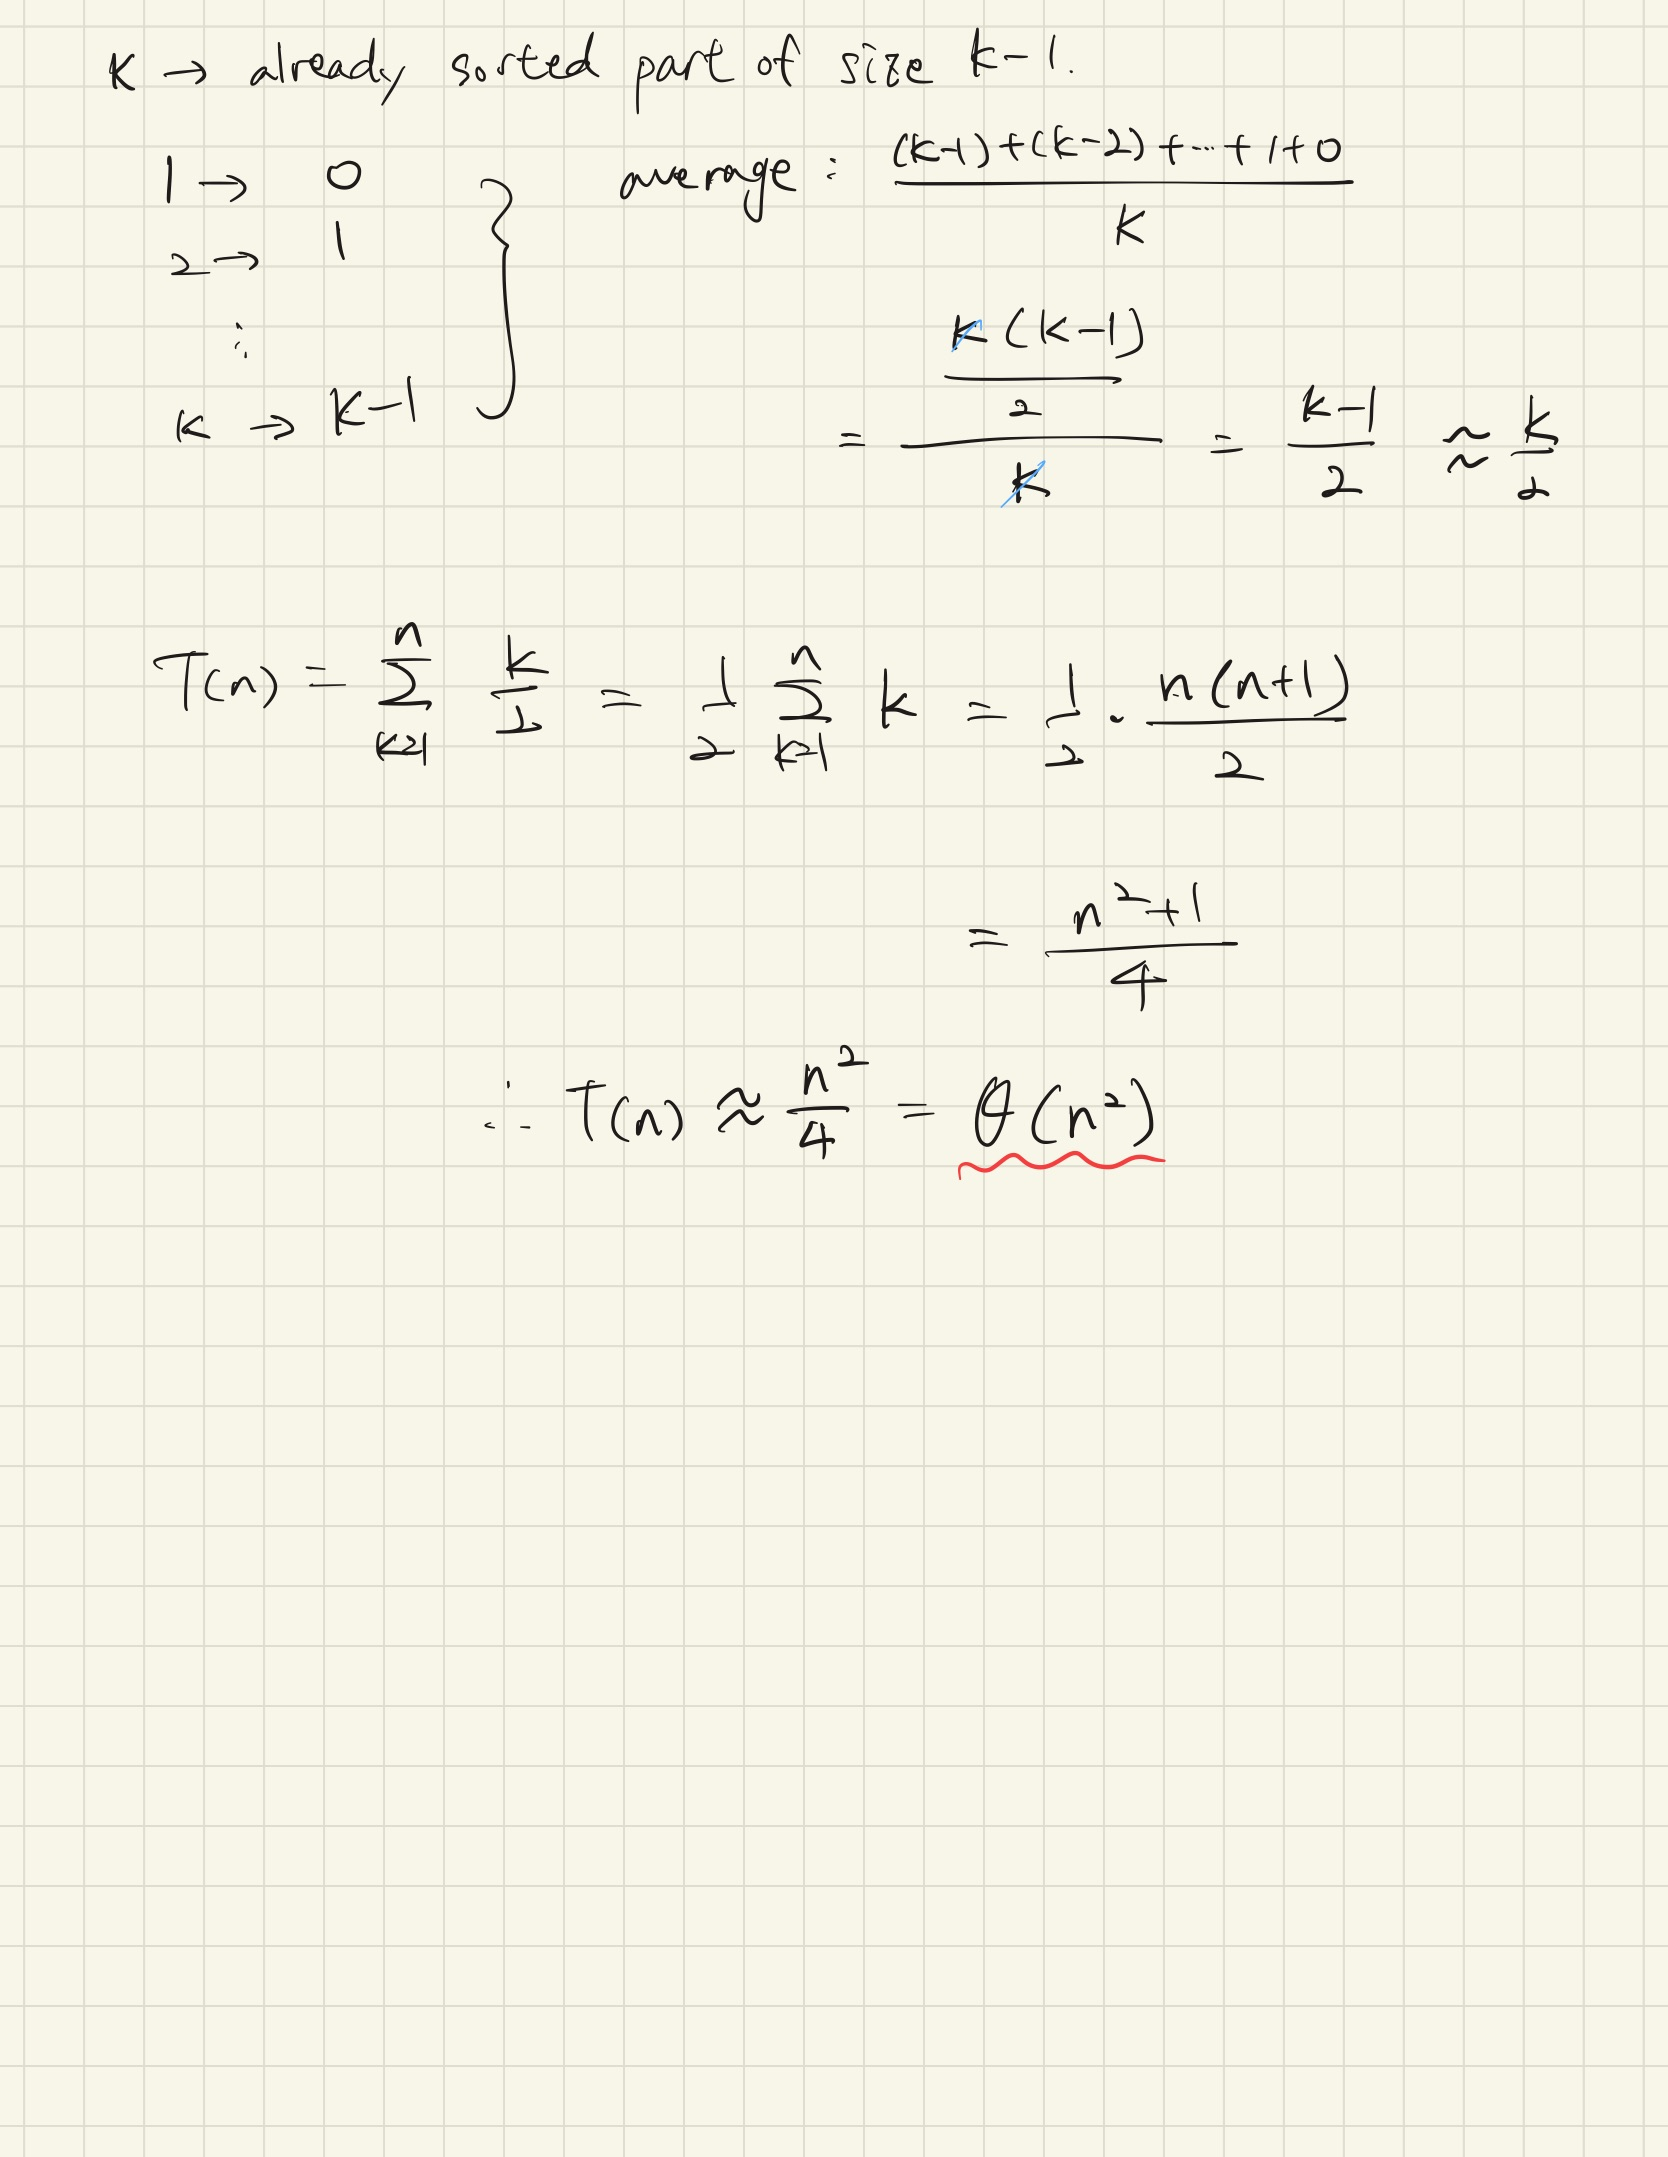 K → already sorted part of size k-1.
1 → 0
2 → 1
⋮
K → K-1
average : ((k-1)+(k-2)+⋯+1+0)/K
= (k(k-1)/2)/k = (k-1)/2 ≈ k/2
T(n) = Σ_{k=1}^{n} k/2 = 1/2 Σ_{k=1}^{n} k = 1/2 · n(n+1)/2
= (n²+1)/4
∴ T(n) ≈ n²/4 = θ(n²)